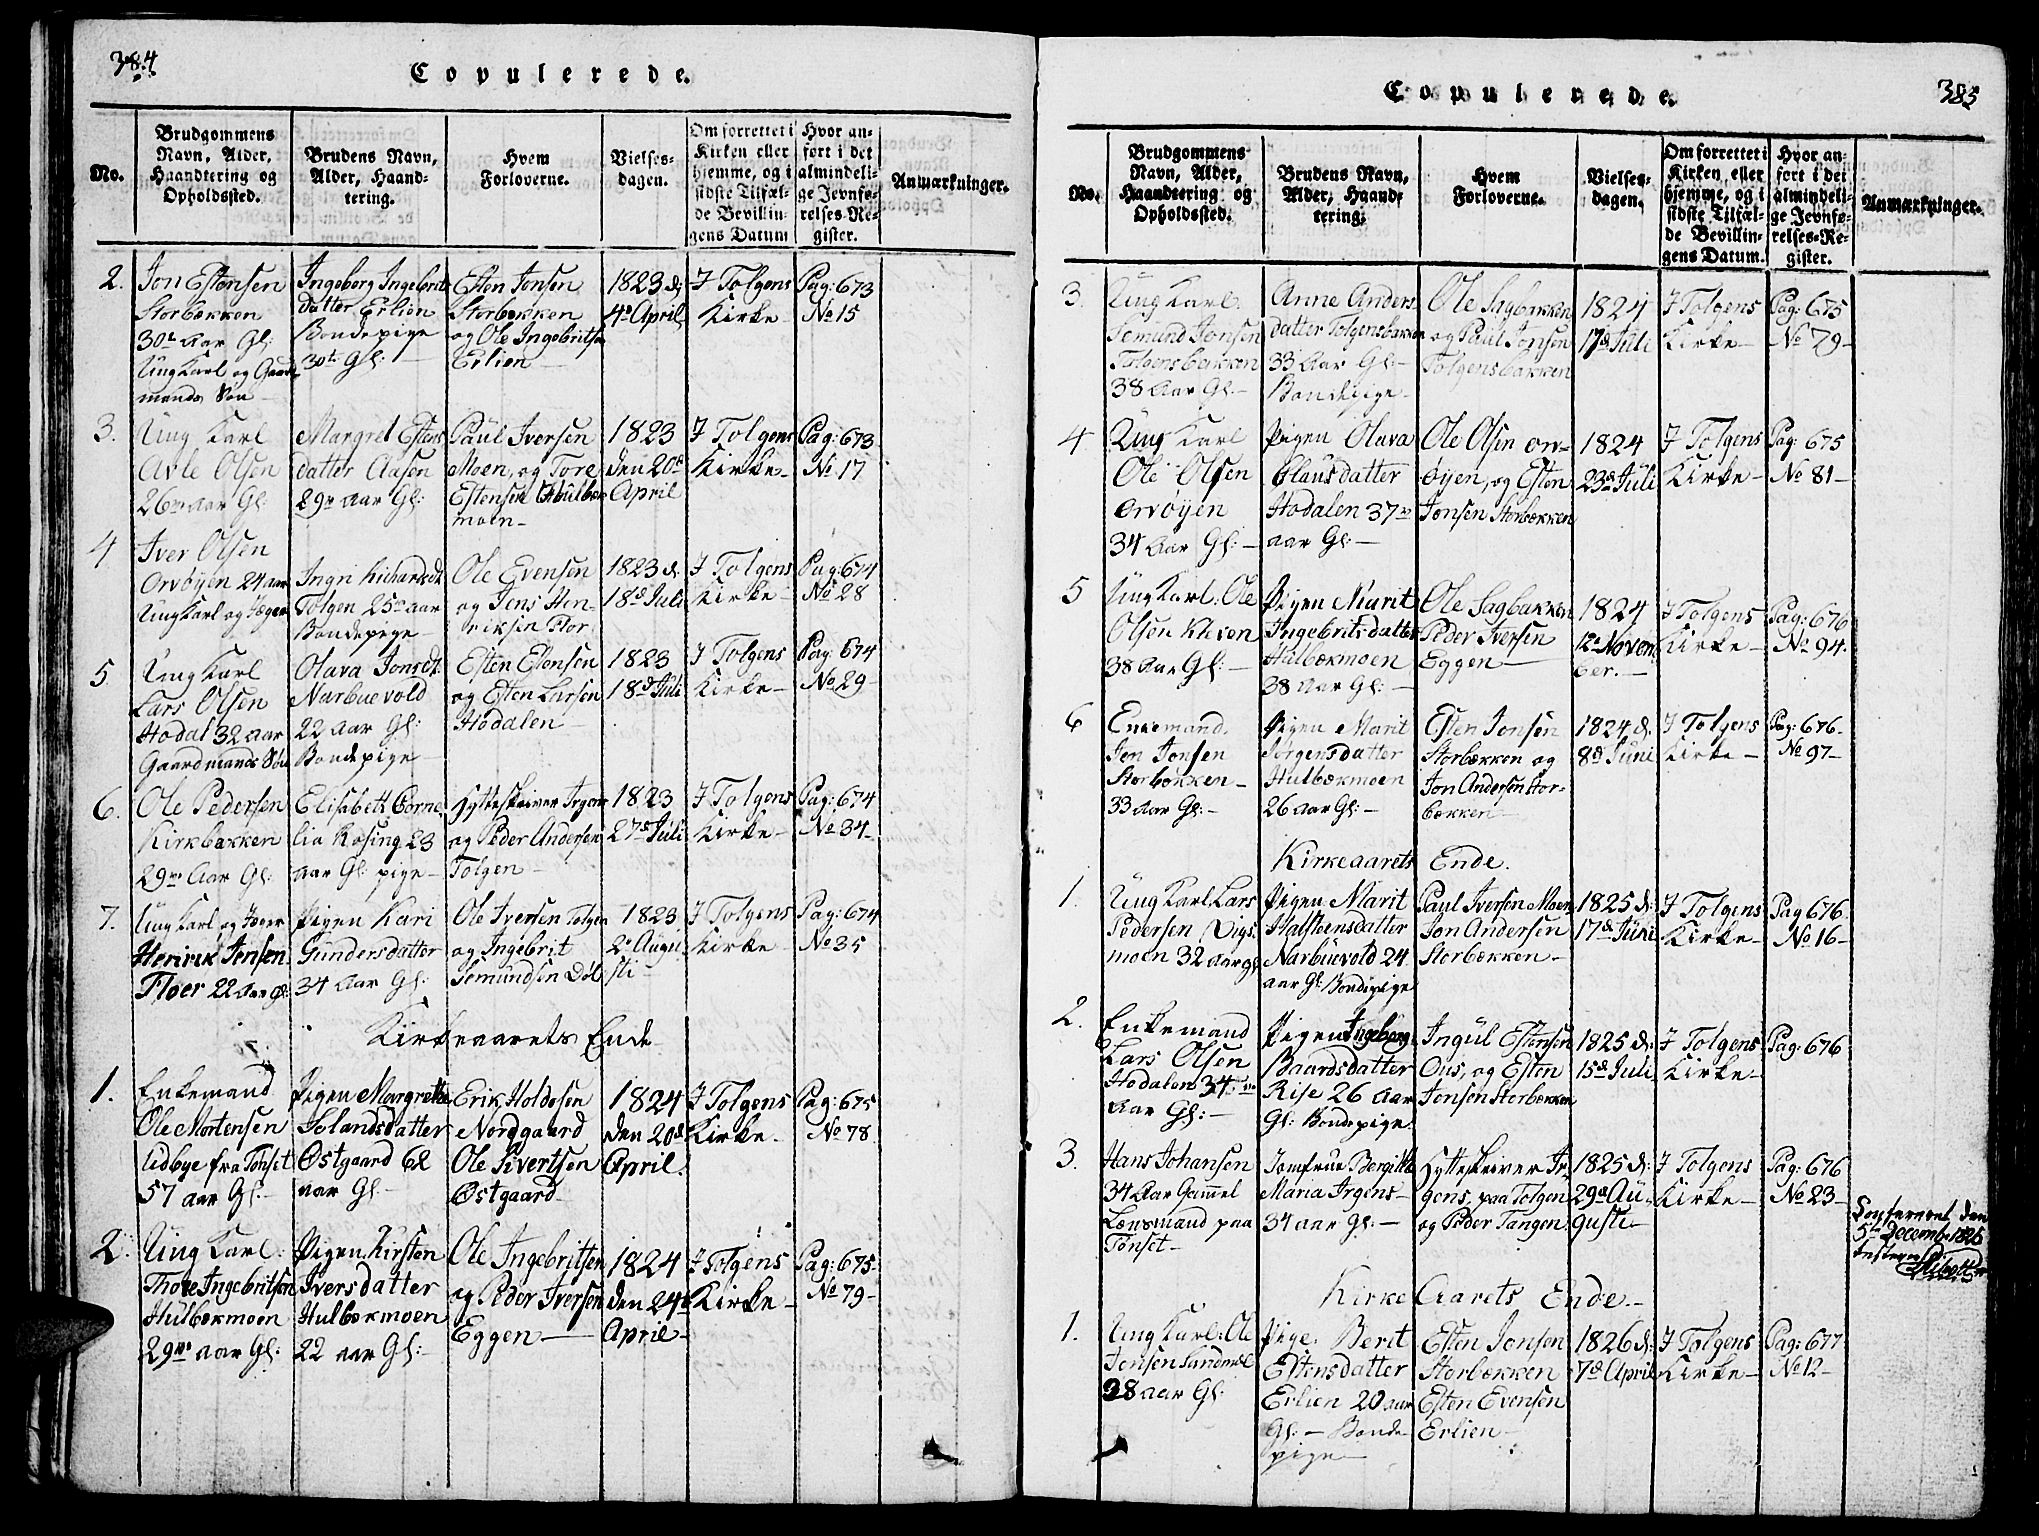 384
Copulerede.
No.
Brudgommens
Navn, Alder,
Haandtering og
Opholdssted.
Brudens Navn,
Alder, Haand-
tering.
Hvem
Forloverne.
Vielses-
dagen.
Om forrettet i
Kirken eller
hjemme, og i
sidste Tilfæl-
de Bevillin-
gens Datum
Hvor an-
ført i det
almindeli-
ge Jevnfø-
relses-Re-
gister.
Anmærkninger.
2.
Jon Estensen
Storbækken
30te Aar Gl:
Ung Karl og Gaard
mands Søn
Ingeborg Ingebrit
datter Erlien
Bondepige
30te Gl:
Esten Jonsen
Storbekken
og Ole Ingebritsen
Erlien
1823 d:
4de April
I Tolgens
Kirke
Pag: 673
No 15
3.
Ung Karl
Avle Olsen
26 aar Gl:
Margret Estens
datter Aasen
29 aar Gl:
Paul Iversen
Moen, og Tore
Estensen Hulbæk
moen
1823
den 20de
April
I Tolgens
Kirke
Pag: 673
No 17
4
Iver Olsen
Orvøyen 24 aar
Ung Karl og Jæger
Ingri Richardsdt
Tolgen 25 aar
Bondepige
Ole Evensen
og Jens Hen-
riksen Flor
1823 d:
18de Juli
I Tolgens
Kirke
Pag: 674
No 28
5
Ung Karl
Lars Olsen
Hodal 32 aar
Gaardmands Søn
Olava Jonsdt
Narbuevold
22 aar Gl:
Bondepige
Esten Estensen
og Esten Larsen
Hodalen
1823
18de Juli
I Tolgens
Kirke
Pag: 674
No 29
6.
Ole Pedersen
Kirkbakken
29 Aar Gl:
Elisabeth Corne
lia Rosing 23
aar Gl: pige
Hytteskriver Irgens
og Peder Andersen
Tolgen
1823
27de Juli
I Tolgens
Kirke
Pag: 674
No 34
7.
Ung Karl og Jæger
Henrik Jensen
Floer 22 aar Gl:
Pigen Kari
Gundersdatter
34 aar Gl:
Ole Iversen Tolgen
og Ingebrit
Semundsen Døl
1823
2de Augu
sti
I Tolgens
Kirke
Pag: 674
No 35
Kirkeaarets Ende
1.
Enkemand
Ole Mortensen
Udbye fra Tønset
57 aar Gl:
Pigen Margrethe
Solandsdatter
Østgaard 62
aar Gl
Erik Holdosen
Nordgaard
Ole Sivertsen
Østgaard
1824
den 20de
April.
I Tolgens
Kirke
Pag: 675
No 78
2
Ung Karl:
Thore Ingebritsen
Hulbækmoen
29 aar Gl:
Pigen Kirsten
Iversdatter
Hulbækmoen
22 aar Gl:
Ole Ingebritsen
og Peder Iversen
Eggen
1824
den 24de
April
I Tolgens
Kirke
Pag: 675
No 79
385
Copulerede.
No.
Brudgommens
Navn, Alder,
Haandtering og
Opholdssted.
Brudens Navn,
Alder, Haand-
tering.
Hvem
Forloverne.
Vielses-
dagen.
Om forrettet i
Kirken eller
hjemme, og i
sidste Tilfæl-
de Bevillin-
gens Datum.
Hvor an-
ført i det
almindeli-
ge Jevnfø-
relses-Re-
gister.
Anmærkninger.
3.
Ung Karl.
Semund Jonsen
Tolgensbakken
38 Aar Gl:
Anne Anders
datter Tolgensbakken
33 Aar Gl:
Bondepige
Ole Sagbakken
og Paul Jonsen
Tolgensbakken
1824
17de Juli
I Tolgens
Kirke
Pag: 675
No 79
4
Ung Karl
Ole Olsen
Orvøyen
34 Aar Gl:
Pigen Olava
Clausdatter
Hodalen 37
aar Gl:
Ole Olsen Or-
øyen, og Esten
Jonsen Storbækken
1824
23de Juli
I Tolgens
Kirke
Pag: 675
No 81
5
Ung Karl: Ole
Olsen Kleven
38 Aar Gl:
Pigen Marit
Ingebritsdatter
Hulbækmoen
38 aar Gl:
Ole Sagbakken
Peder Iversen
Eggen
1824
12te Novem
ber.
I Tolgens
Kirke
Pag: 676
No 94.
6
Enkemand.
Jon Jonsen
Storbækken
33 aar Gl:
Pigen Marit
Jørgensdatter
Hulbækmoen
26 aar Gl:
Esten Jonsen
Storbækken og
Jon Andersen Stor-
bækken
1824 d:
8de Juni
I Tolgens
Kirke
Pag: 676
No 97
Kirkeaarets Ende.
1.
Ung Karl Lars
Pedersen Vigs
moen 32 aar gl
Pigen Marit
Halstensdatter
Narbuevold 24
aar Gl: Bondepige
Paul Iversen Moen
Jon Andersen
Storbækken
1825 d:
17de Juni
I Tolgens
Kirke
Pag 676.
No 16
2.
Enkemand
Lars Olsen
Hodalen 34
Aar Gl:
Pigen Ingeborg
Baardsdatter
Rise 26 aar
Gl: Bondepige
Ingul Estensen
Ous, og Esten
Jonsen Storbækken
1825 d:
15de Juli
I Tolgens
Kirke
Pag: 676
3.
Hans Johansen
34 Aar Gammel
Lensmand paa
Tønset
Jomfrue Bergitte
Maria Irgens
34 aar gl:
Hytteskriver Ir
gens, paa Tolgen
og Peder Tangen
1825 d:
29de Au
guste
I Tolgens
Kirke
Pag: 676
No 23
Confereret den
5te December 1826
testerer
Kirke Aarets Ende
1.
Ung Karl: Ole
Jonsen Sandmæl
28 aar Gl:
Pige Berit
Estensdatter
Erlien 20 aar
Gl: Bonde
pige
Esten Jonsen
Storbækken
Esten Evensen
Erlien
1826 d:
7de April
I Tolgens
Kirke
Pag: 677
No 12